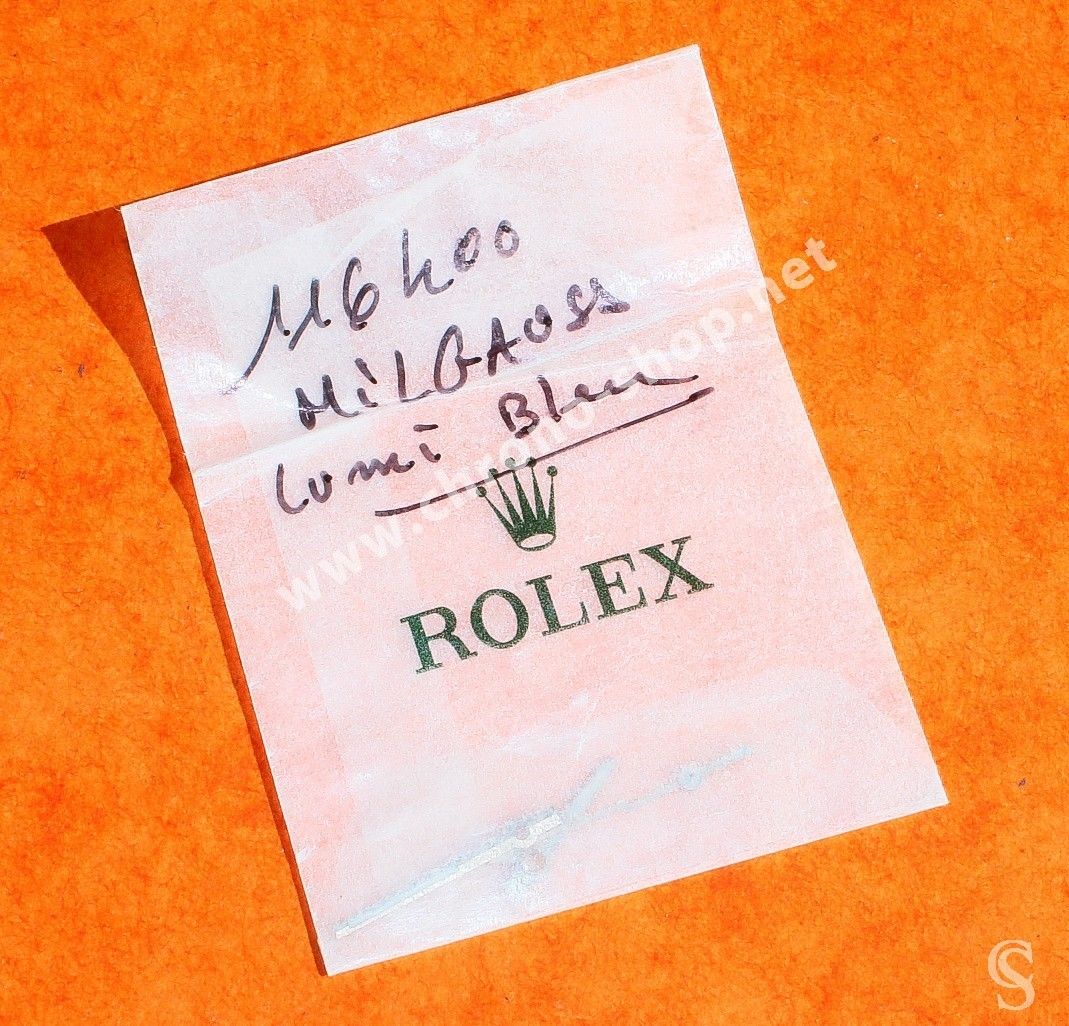 116400
MiLGAUSS
Lumi Bleu
ROLEX
www.chrono-shop.net